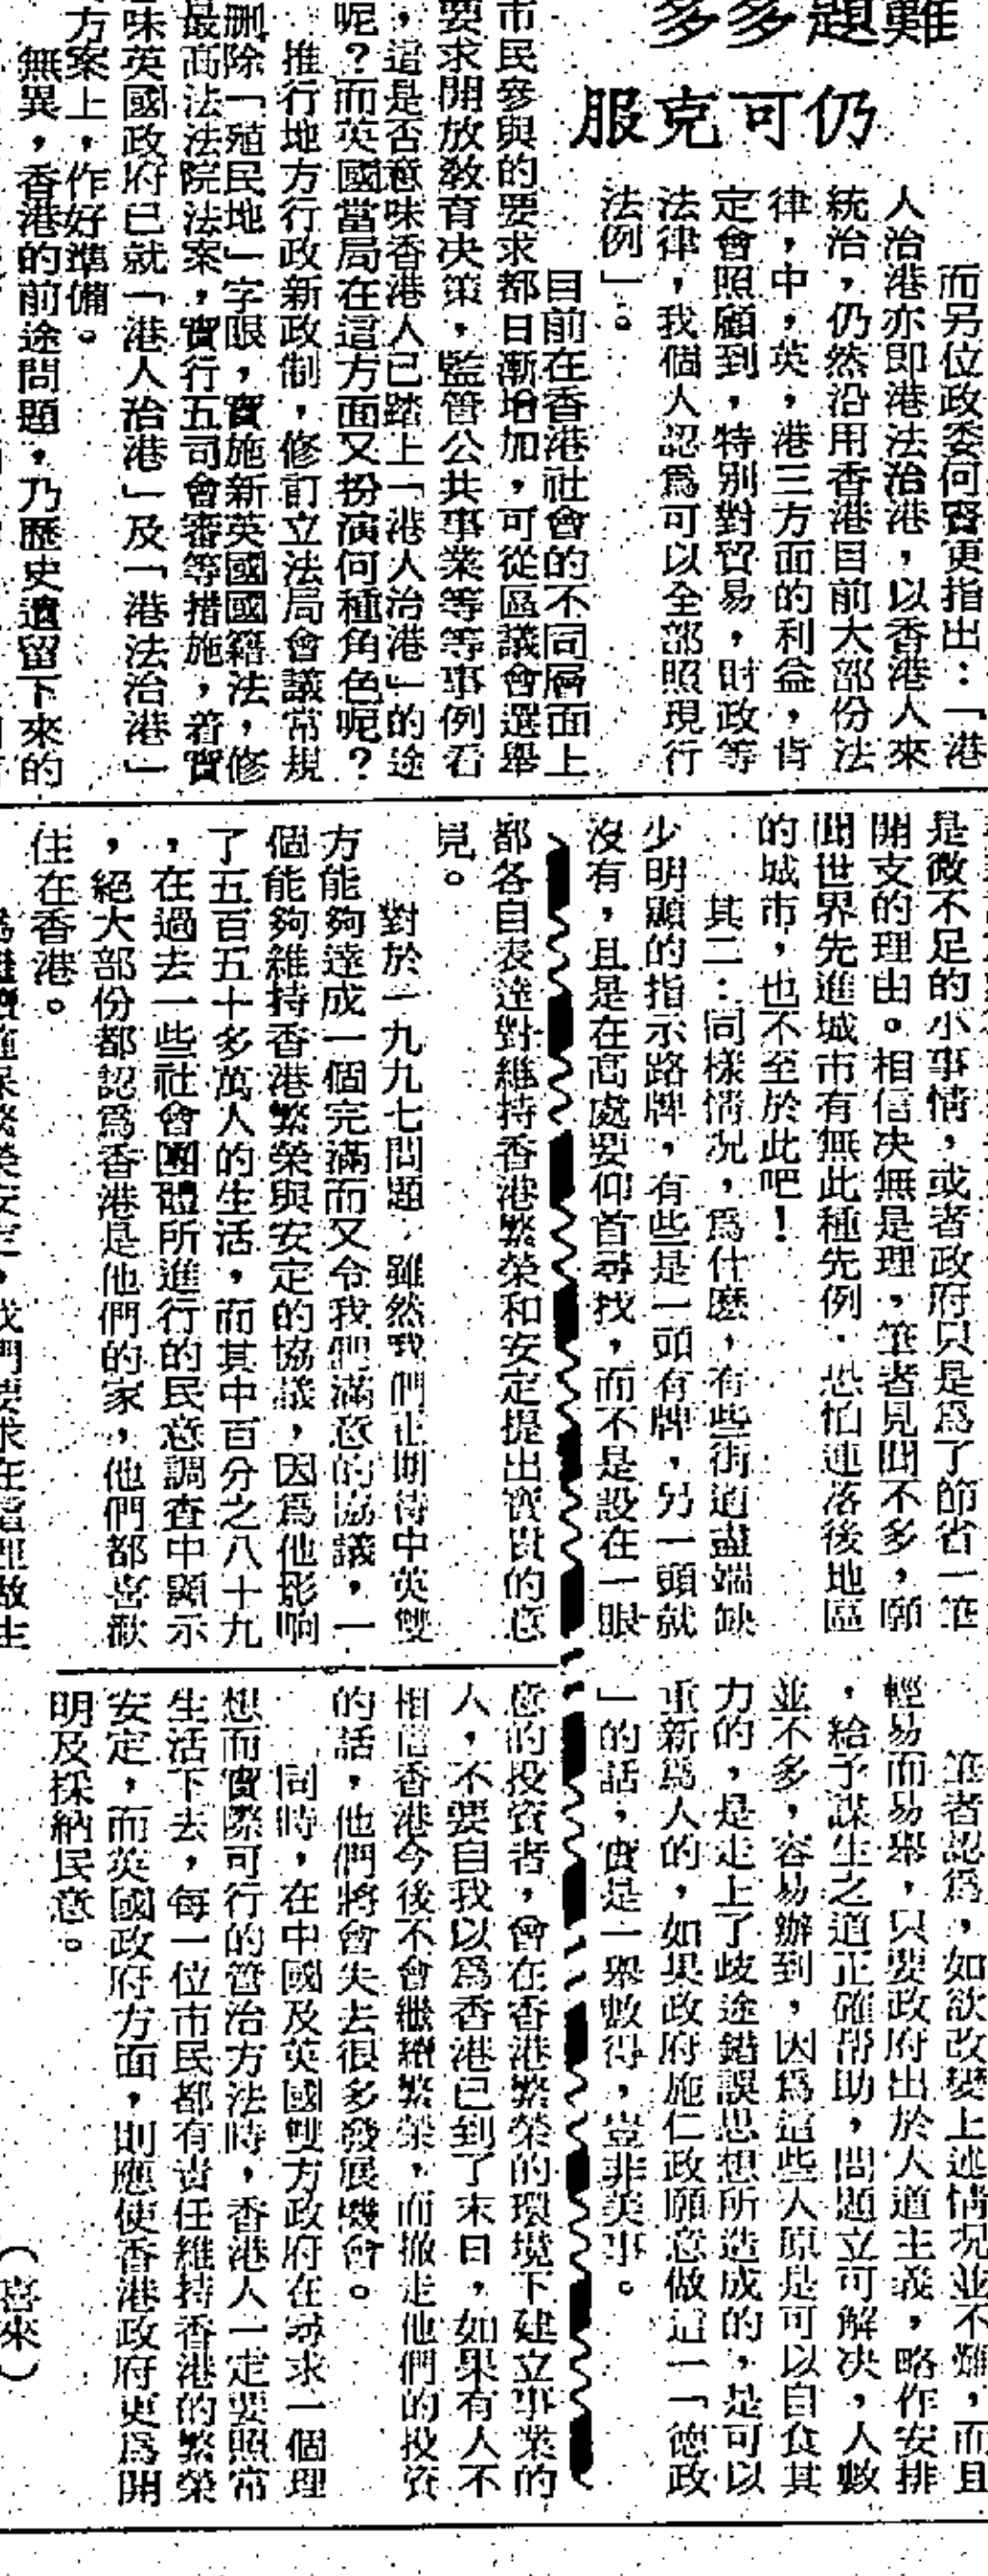 難題多多
仍可克服
而另位政委何賢更指出：「港
人治港亦即港法治港，以香港人來
統治，仍然沿用香港目前大部份法
律，中，英，港三方面的利益，肯
定會照顧到，特別對貿易，財政等
法律，我個人認爲可以全部照現行
法例」。
目前在香港社會的不同層面上
市民參與的要求都日漸增加，可從區議會選舉
要求開放教育決策，監管公共事業等等事例看
，這是否意味香港人已踏上「港人治港」的途
呢？而英國當局在這方面又扮演何種角色呢？
推行地方行政新政制，修訂立法局會議常規
刪除「殖民地」字眼，實施新英國國籍法，修
最高法院法案，實行五司會審等措施，着實
味英國政府已就「港人治港」及「港法治港」
方案上，作好準備。
無異，香港的前途問題，乃歷史遺留下來的
是微不足的小事情，或者政府只是爲了節省一筆
開支的理由。相信決無是理，筆者見聞不多，願
聞世界先進城市有無此種先例．恐怕連落後地區
的城市，也不至於此吧！
其二：同樣情況，爲什麽，有些街道盡端缺
少明顯的指示路牌，有些是一頭有牌，另一頭就
沒有，且是在高處要仰首尋找，而不是設在一眼
都各自表達對維持香港繁榮和安定提出寶貴的意
見。
對於一九九七問題，雖然我們正期待中英雙
方能夠達成一個完滿而又令我們滿意的協議，一
個能夠維持香港繁榮與安定的協議，因爲他影响
了五百五十多萬人的生活，而其中百分之八十九
，在過去一些社會團體所進行的民意調查中顯示
，絕大部份都認爲香港是他們的家，他們都喜歡
住在香港。
筆者認爲，如欲改變上述情况並不難，而且
輕易而易舉，只要政府出於人道主義，略作安排
，給予謀生之道正確帮助，問題立可解决，人數
並不多，容易辦到，因爲這些人原是可以自食其
力的，是走上了歧途錯誤思想所造成的，是可以
重新爲人的，如果政府施仁政願意做這一「德政
」的話，實是一舉數得，豈非美事。
意的投資者，會在香港繁榮的環境下建立事業的
人，不要自我以爲香港已到了末日，如果有人不
相信香港今後不會繼續繁榮，而撤走他們的投資
的話，他們將會失去很多發展機會。
同時，在中國及英國雙方政府在尋求一個理
想而實際可行的管治方法時，香港人一定要照常
生活下去，每一位市民都有責任維持香港的繁榮
安定，而英國政府方面，則應使香港政府更爲開
明及採納民意。
（喜來）